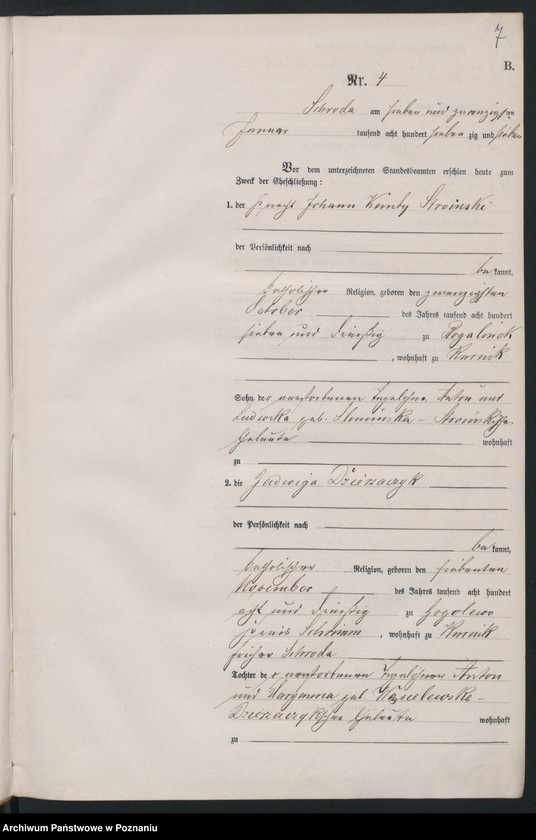 7
B.
Nr. 4
Schroda am sieben und zwanzigsten
Januar tausend acht hundert sieben zig und sieben
Vor dem unterzeichneten Standesbeamten erschien heute zum
Zweck der Eheschließung:
1. der Knecht Johann Stroinski
der Persönlichkeit nach
be kannt,
katholischer Religion, geboren den zwanzigsten
October des Jahres tausend acht hundert
sieben und dreißig zu Rogalinek
, wohnhaft zu Kurnik
Sohn der verstorbenen Anton und
Ludwika geb. Slominska - Stroinskischen
Eheleute wohnhaft
zu
2. die Hedwiga Dzierzaczyk
der Persönlichkeit nach
be kannt,
katholischer Religion, geboren den siebenten
November des Jahres tausend acht hundert
acht und dreißig zu Gogolewo
Kreis Schrimm, wohnhaft zu Kurnik
früher Schroda
Tochter der verstorbenen Anton
und Maryanna geb. Wasielewska -
Dzierzaczykschen Eheleute wohnhaft
zu
Archiwum Państwowe w Poznaniu